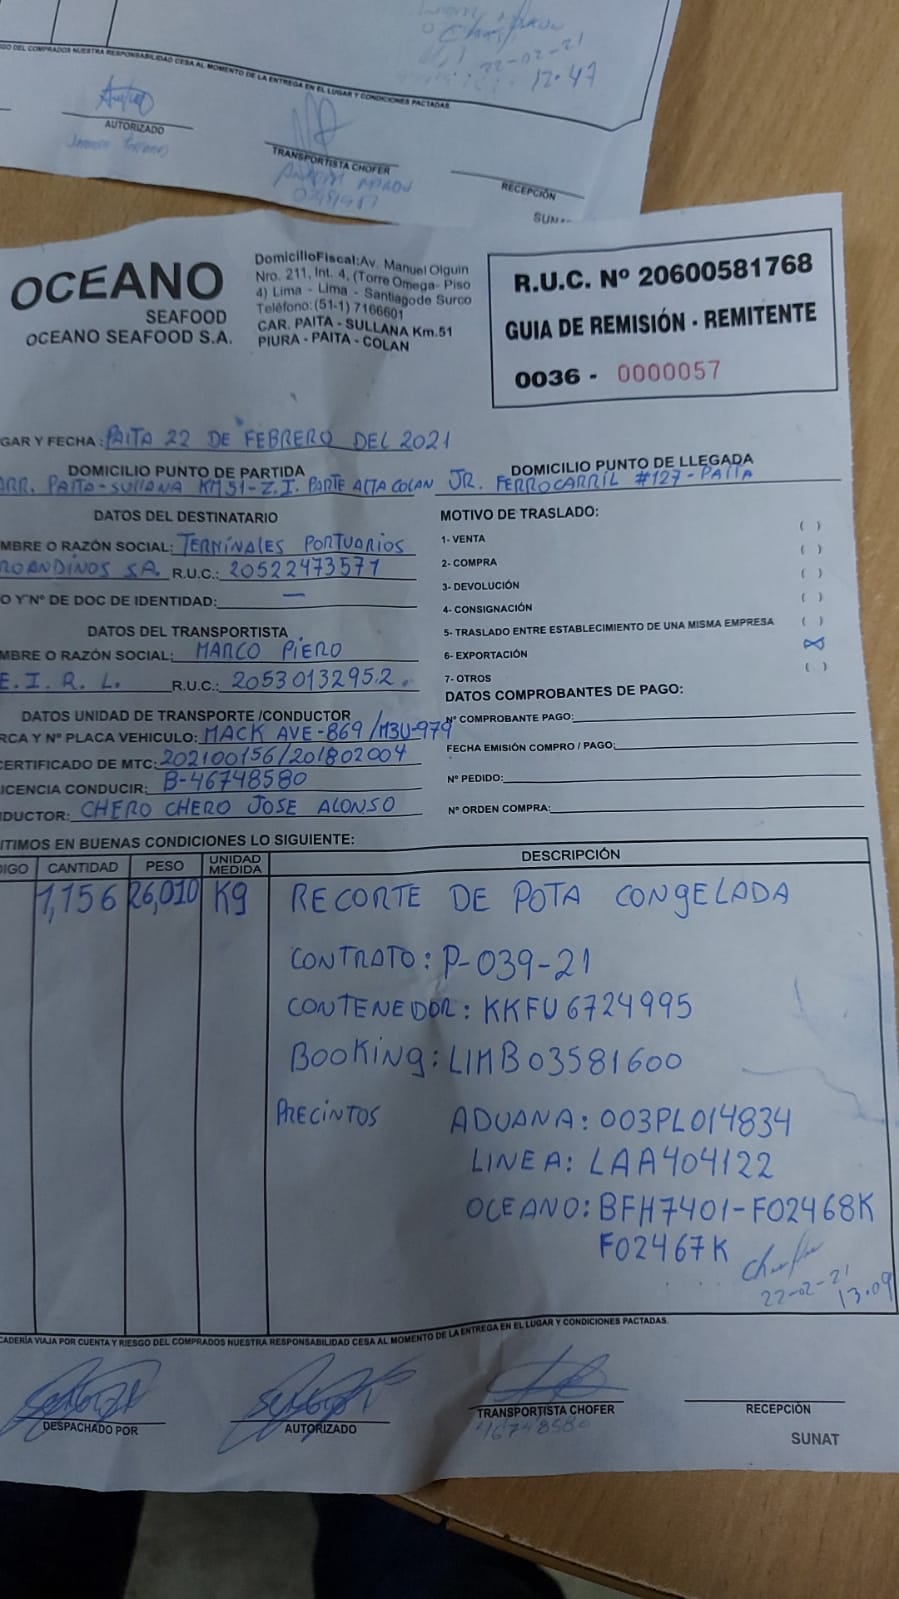 22-02-21
12:47
GO DEL COMPRADOS NUESTRA RESPONSABILIDAD CESA AL MOMENTO DE LA ENTREGA EN EL LUGAR Y CONDICIONES PACTADAS.
AUTORIZADO
TRANSPORTISTA CHOFER
RECEPCIÓN
SUNAT
OCEANO
SEAFOOD
OCEANO SEAFOOD S.A.
DomicilioFiscal:Av. Manuel Olguin
Nro. 211, Int. 4, (Torre Omega- Piso
4) Lima - Lima - Santiagode Surco
Teléfono:(51-1) 7166601
CAR. PAITA - SULLANA Km.51
PIURA - PAITA - COLAN
R.U.C. Nº 20600581768
GUIA DE REMISIÓN - REMITENTE
0036 - 0000057
GAR Y FECHA: PAITA 22 DE FEBRERO DEL 2021
DOMICILIO PUNTO DE PARTIDA
ARR. PAITA-SULLANA KM 51-Z.I. PARTE ALTA COLAN
DOMICILIO PUNTO DE LLEGADA
JR. FERROCARRIL #127-PAITA
DATOS DEL DESTINATARIO
MBRE O RAZÓN SOCIAL: TERMINALES PORTUARIOS
ROANDINOS S.A. R.U.C.: 20522473571
O Y Nº DE DOC DE IDENTIDAD: —
DATOS DEL TRANSPORTISTA
MBRE O RAZÓN SOCIAL: MARCO PIERO
E.I.R.L. R.U.C.: 20530132952.
DATOS UNIDAD DE TRANSPORTE /CONDUCTOR
RCA Y Nº PLACA VEHICULO: MACK AVE-869/M3U-979
CERTIFICADO DE MTC: 202100156/201802004
ICENCIA CONDUCIR: B-46748580
NDUCTOR: CHERO CHERO JOSE ALONSO
MOTIVO DE TRASLADO:
1- VENTA ( )
2- COMPRA ( )
3- DEVOLUCIÓN ( )
4- CONSIGNACIÓN ( )
5- TRASLADO ENTRE ESTABLECIMIENTO DE UNA MISMA EMPRESA ( )
6- EXPORTACIÓN (X)
7- OTROS ( )
DATOS COMPROBANTES DE PAGO:
Nº COMPROBANTE PAGO:
FECHA EMISIÓN COMPRO / PAGO:
Nº PEDIDO:
Nº ORDEN COMPRA:
ITIMOS EN BUENAS CONDICIONES LO SIGUIENTE:
DIGO CANTIDAD PESO UNIDAD MEDIDA DESCRIPCIÓN
1,156 26,010 Kg RECORTE DE POTA CONGELADA
CONTRATO: P-039-21
CONTENEDOR: KKFU6724995
BOOKING: LIMB03581600
PRECINTOS ADUANA: 003PL014834
LINEA: LAA404122
OCEANO: BFH7401-F02468K
F02467K
22-02-21
13:09
CADERÍA VIAJA POR CUENTA Y RIESGO DEL COMPRADOS NUESTRA RESPONSABILIDAD CESA AL MOMENTO DE LA ENTREGA EN EL LUGAR Y CONDICIONES PACTADAS.
DESPACHADO POR
AUTORIZADO
TRANSPORTISTA CHOFER
46748580
RECEPCIÓN
SUNAT